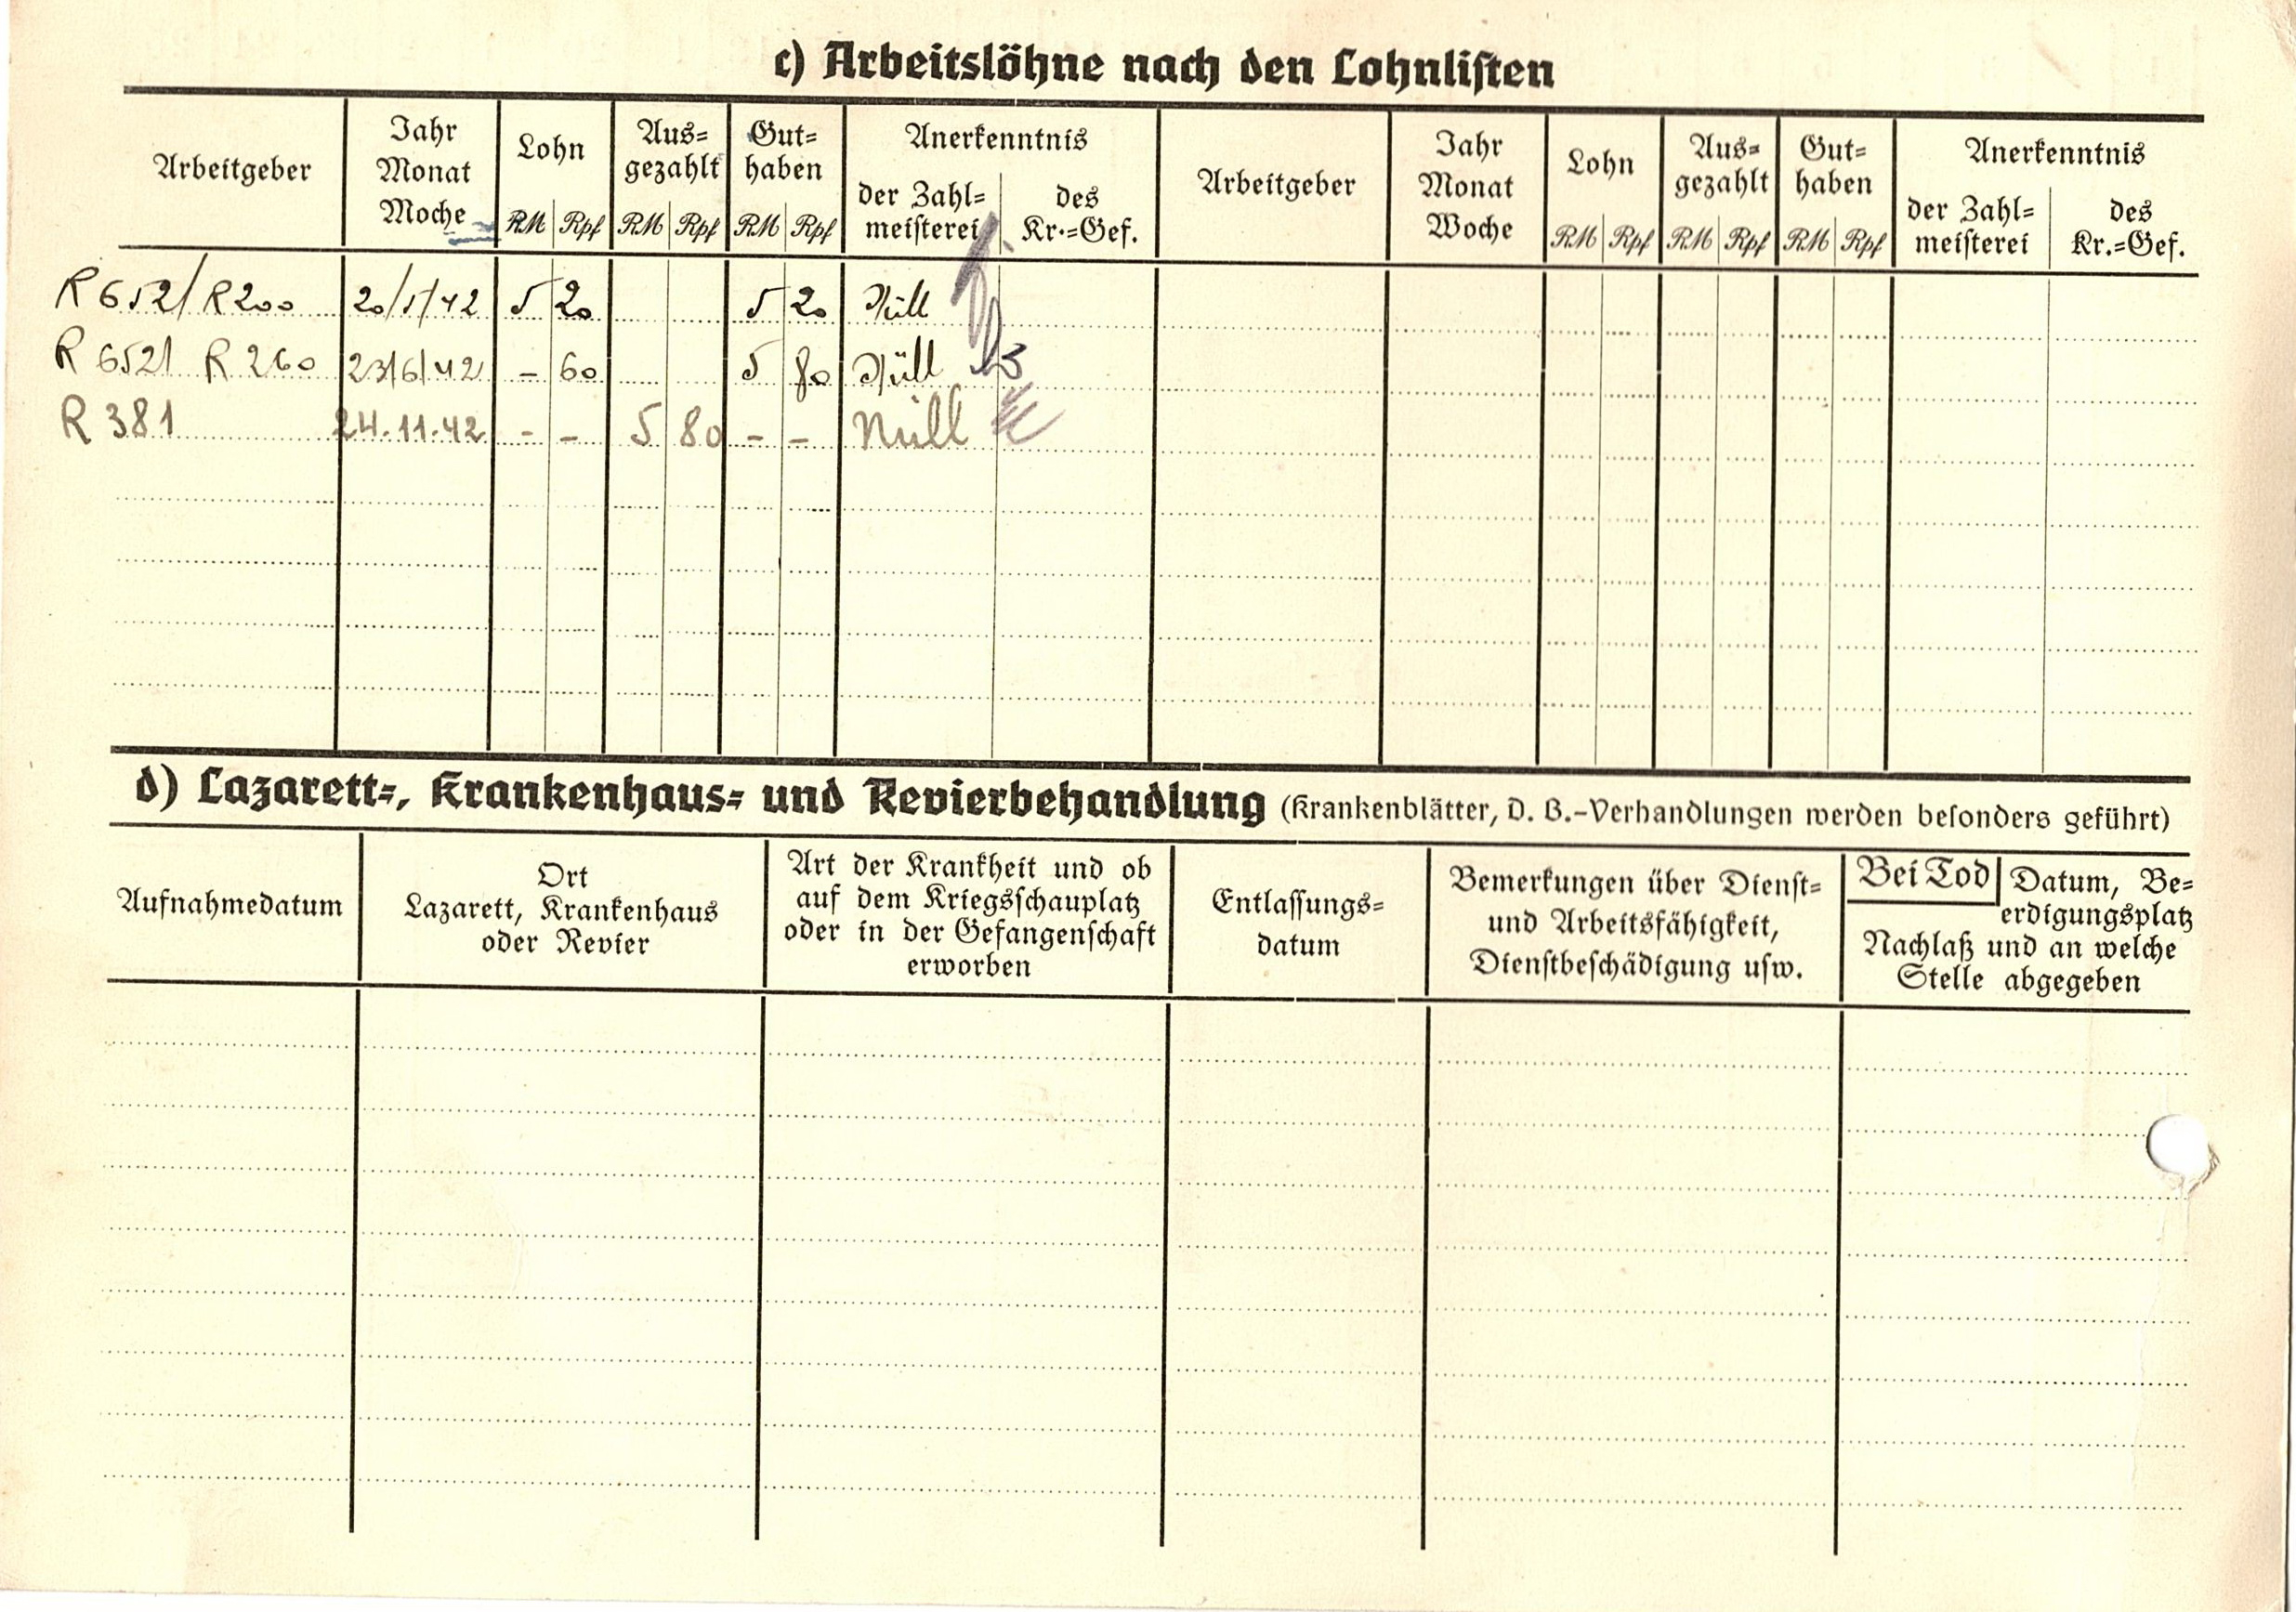 c) Arbeitslöhne nach den Lohnlisten
Arbeitgeber
Jahr
Monat
Woche
Lohn
RM Rpf
Aus-
gezahlt
RM Rpf
Gut-
haben
RM Rpf
Anerkenntnis
der Zahl-
meisterei
des
Kr.-Gef.
Arbeitgeber
Jahr
Monat
Woche
Lohn
RM Rpf
Aus-
gezahlt
RM Rpf
Gut-
haben
RM Rpf
Anerkenntnis
der Zahl-
meisterei
des
Kr.-Gef.
R 652/ R 200 20/5/42 5 20 5 20 Nüll
R 652/ R 260 23/6/42 – 60 5 80 Nüll
R 381 24.11.42 - - 5 80 - - Nüll
d) Lazarett-, Krankenhaus- und Revierbehandlung (Krankenblätter, D. B.-Verhandlungen werden besonders geführt)
Aufnahmedatum
Ort
Lazarett, Krankenhaus
oder Revier
Art der Krankheit und ob
auf dem Kriegsschauplatz
oder in der Gefangenschaft
erworben
Entlassungs-
datum
Bemerkungen über Dienst-
und Arbeitsfähigkeit,
Dienstbeschädigung usw.
Bei Tod Datum, Be-
erdigungsplatz
Nachlaß und an welche
Stelle abgegeben